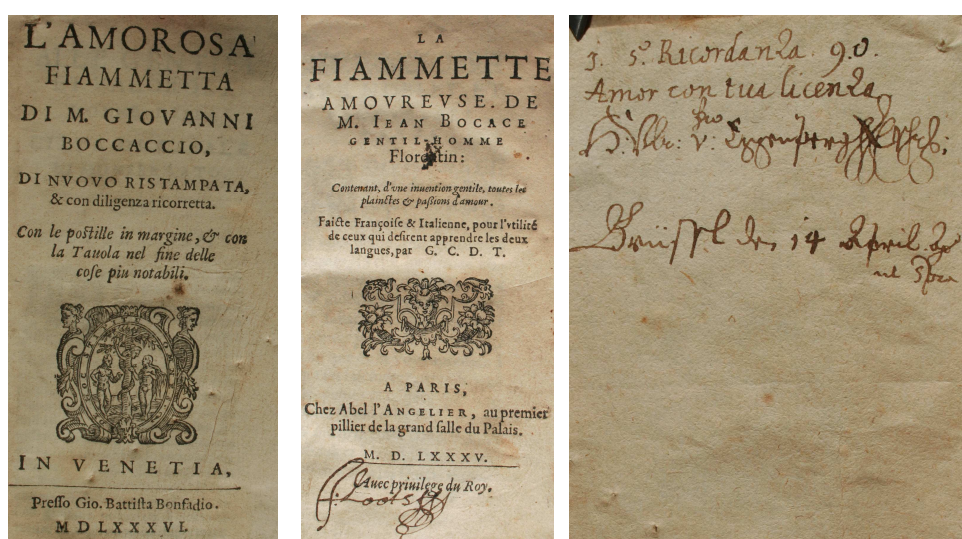 L'AMOROSA
FIAMMETTA
DI M. GIOVANNI
BOCCACCIO,
DI NVOVO RISTAMPATA,
& con diligenza ricorretta.
Con le postille in margine, & con
la Tauola nel fine delle
cose piu notabili.
IN VENETIA,
Presso Gio. Battista Bonfadio.
MDLXXXVI.
LA
FIAMMETTE
AMOVREVSE. DE
M. IEAN BOCACE
GENTIL-HOMME
Florentin:
Contenant, d'vne inuention gentile, toutes les
plainctes & passions d'amour.
Faicte Françoise & Italienne, pour l'vtilité
de ceux qui desirent apprendre les deux
langues, par G. C. D. T.
A PARIS,
Chez Abel l'ANGELIER, au premier
pillier de la grand salle du Palais.
M. D. LXXXV.
Auec priuilege du Roy.
Ricordanza 90.
Amor con tua licenza
Brüssel den 14 April